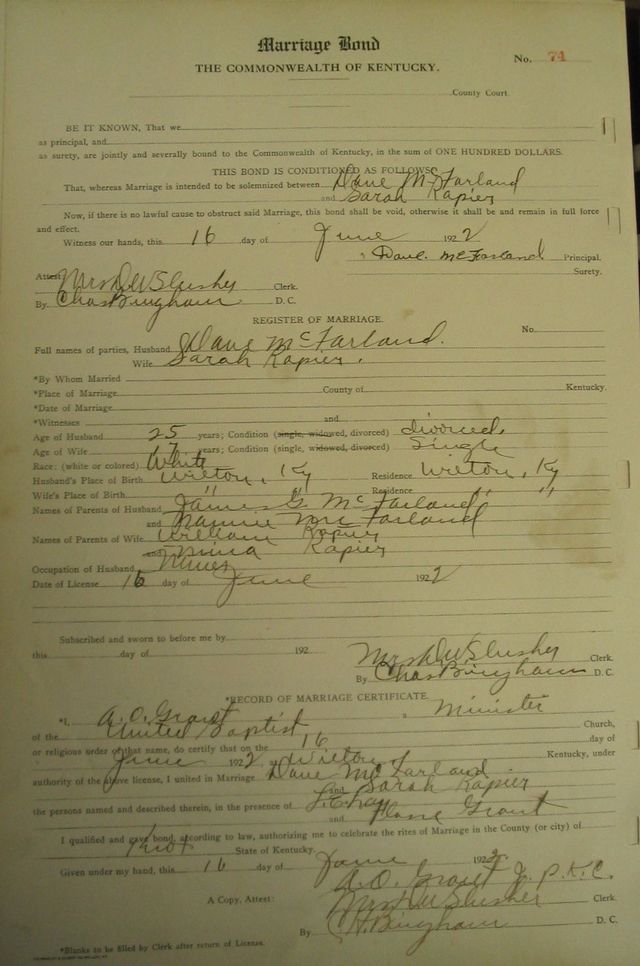 Marriage Bond
THE COMMONWEALTH OF KENTUCKY.
No. 74
County Court.
BE IT KNOWN, That we
as principal, and
as surety, are jointly and severally bound to the Commonwealth of Kentucky, in the sum of ONE HUNDRED DOLLARS.
THIS BOND IS CONDITIONED AS FOLLOWS:
That, whereas Marriage is intended to be solemnized between Dave McFarland
and Sarah Rapier
Now, if there is no lawful cause to obstruct said Marriage, this bond shall be void, otherwise it shall be and remain in full force
and effect.
Witness our hands, this 16 day of June 1922
Dave McFarland Principal.
Surety.
Attest Mrs D W Slusher Clerk.
By Chas Bingham D. C.
REGISTER OF MARRIAGE.
No.
Full names of parties, Husband Dave McFarland.
Wife Sarah Rapier.
*By Whom Married
*Place of Marriage County of Kentucky.
*Date of Marriage
*Witnesses and
Age of Husband 25 years; Condition (single, widowed, divorced) divorced
Age of Wife 17 years; Condition (single, widowed, divorced) Single
Race: (white or colored) White
Husband's Place of Birth Wilton, Ky Residence Wilton, Ky
Wife's Place of Birth " " Residence " "
Names of Parents of Husband James G McFarland
and Nannie McFarland
Names of Parents of Wife William Rapier
Nina Rapier
Occupation of Husband Miner
Date of License 16 day of June 1922
Subscribed and sworn to before me by
this day of 192
Mrs D W Slusher Clerk.
By Chas Bingham D. C.
*RECORD OF MARRIAGE CERTIFICATE.
*I, A. O. Grant a Minister
of the United Baptist Church,
or religious order of that name, do certify that on the 16 day of
June 1922 at Wilton Kentucky, under
authority of the above license, I united in Marriage Dave McFarland
and Sarah Rapier
the persons named and described therein, in the presence of
and Grant
I qualified and gave bond, according to law, authorizing me to celebrate the rites of Marriage in the County (or city) of
Knox State of Kentucky.
Given under my hand, this 16 day of June 1922
A. O. Grant J. P. K. C.
A Copy, Attest: Mrs D W Slusher Clerk.
By C H Bingham D. C.
*Blanks to be filled by Clerk after return of License.